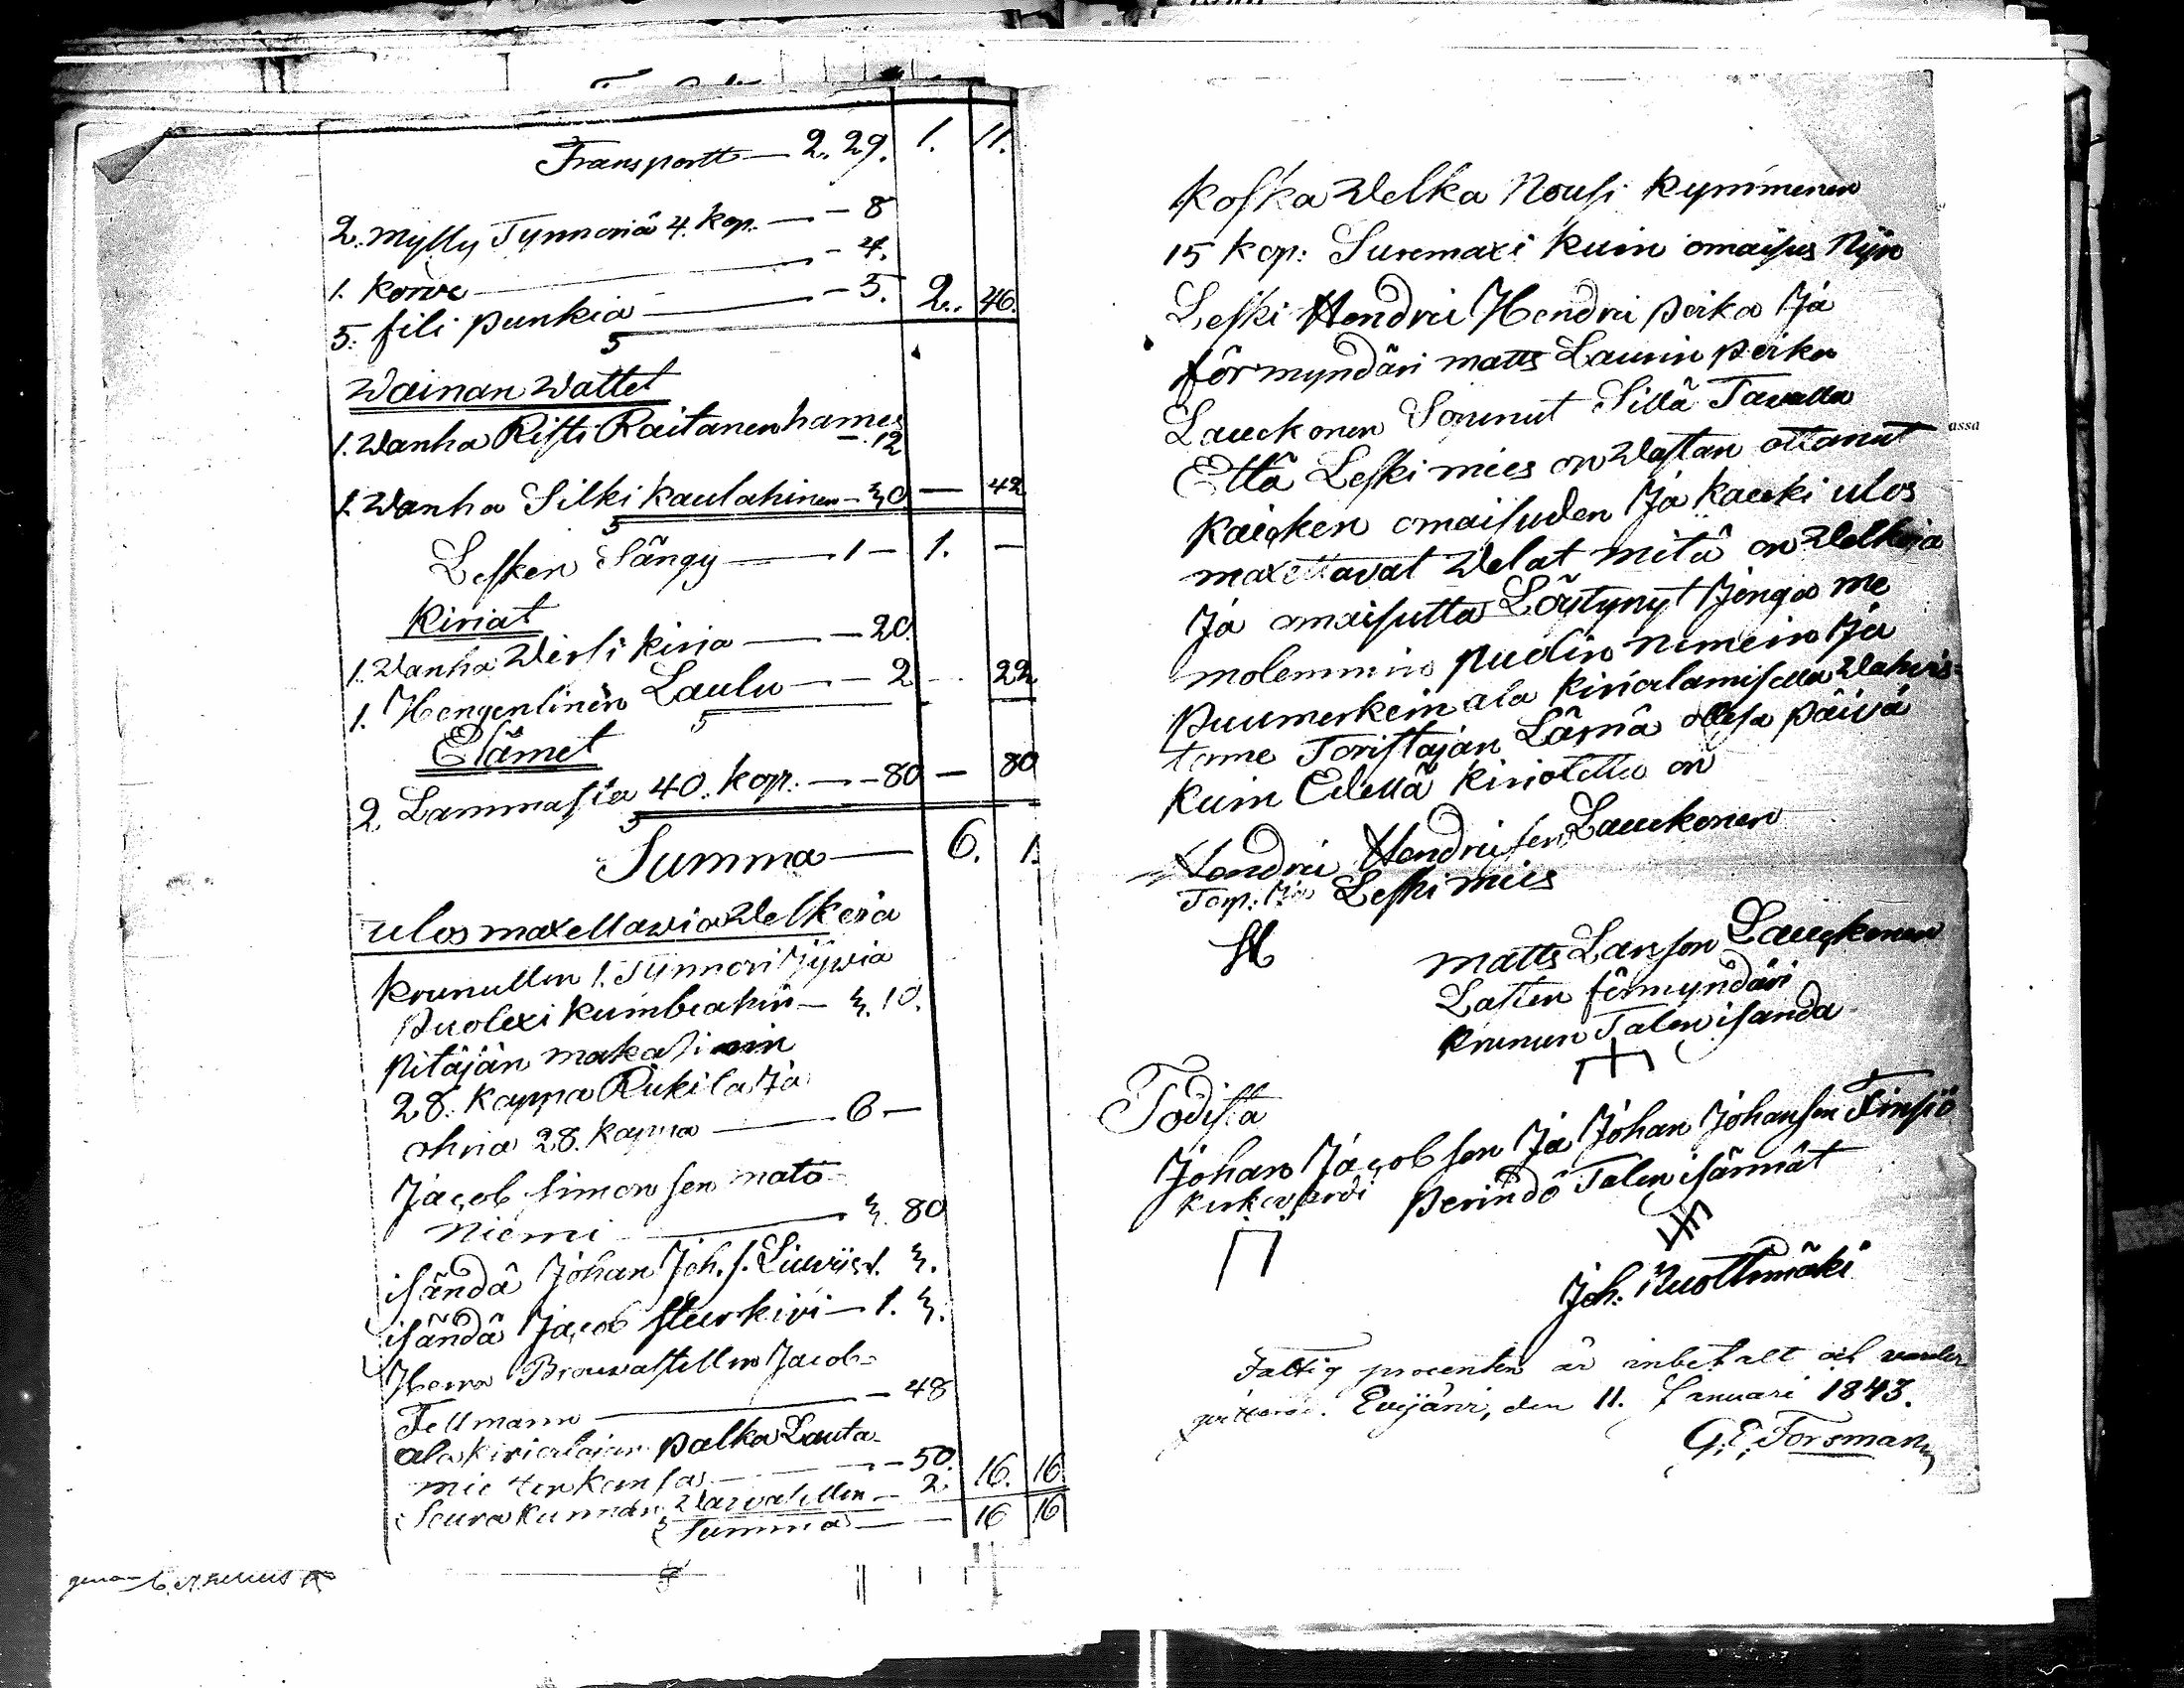 Transportt — 2. 29. 1. 11.
2. Mylly Tynnoriä 4. kop. — - 8
1. korve — - 4.
5. fili punkia — - 5. 2. 46.
Wainan Wattet
1. Wanha Risti Raitanen hames - 12
1. Wanha Silki kaulahinen - 30 — 42
Lesken Sängy — 1 — 1. —
Kiriat
1. Wanha Wirsi kirja — - 20.
1. Hengenlinen Laulu — - 2 - 22
Elämet
2. Lammasta 40. kop. — - 80 — 80
Summa — 6. 1.
ulos maxettawia Welkeja
Krunullen 1. Tynnori Jywia
puolexi kumbeakin — 3. 10.
pitäjän makasinin
28. kappa Rukila Ja
ohria 28. kappa — 6 —
Jacob Simonsen mato
Niemi — 3. 80
isändä Johan Joh. s. 3.
isändä Jacob — 1. 3.
Herra Jacob
Fellmann — - 48
palka Lauta-
- 50. 16. 16
Seurakunnan — 2.
Summa — - 16 16
Koska Welka Nousi kymmenen
15 kop: Suremaxi kuin omaisus Nyn
Leski Hendrii Hendrii poika Ja
förmyndäri matts Laurin poika
Lauckonen Sopinut Sillä Tavalla
assa
Että Leski mies on Wastan ottanut
kaicken omaisuden Ja kaicki ulos
maxettavat Welat mitä on Welkoja
Ja omaisutta Löytynyt Jonga me
molemmin puolin Nimein Ja
puumerkein ala kirioitamisella Wahwis-
tame Toristajan Läsnä ollesa päivä
kuin Edellä kiriotettu on
Hendrii Hendriisen Lauckonen
Leski mies
H
matts Larsson Lauckonen
Lasten förmyndäri
krunun Talon isanda
Todista
Johan Jacobsen Ja Johan Johansen Finsiö
perindö Talon isännät
Joh: Nuottimäki
Fattig procenten är inbetalt
Evijärvi, den 11. Januari 1843.
G. E. Forsman